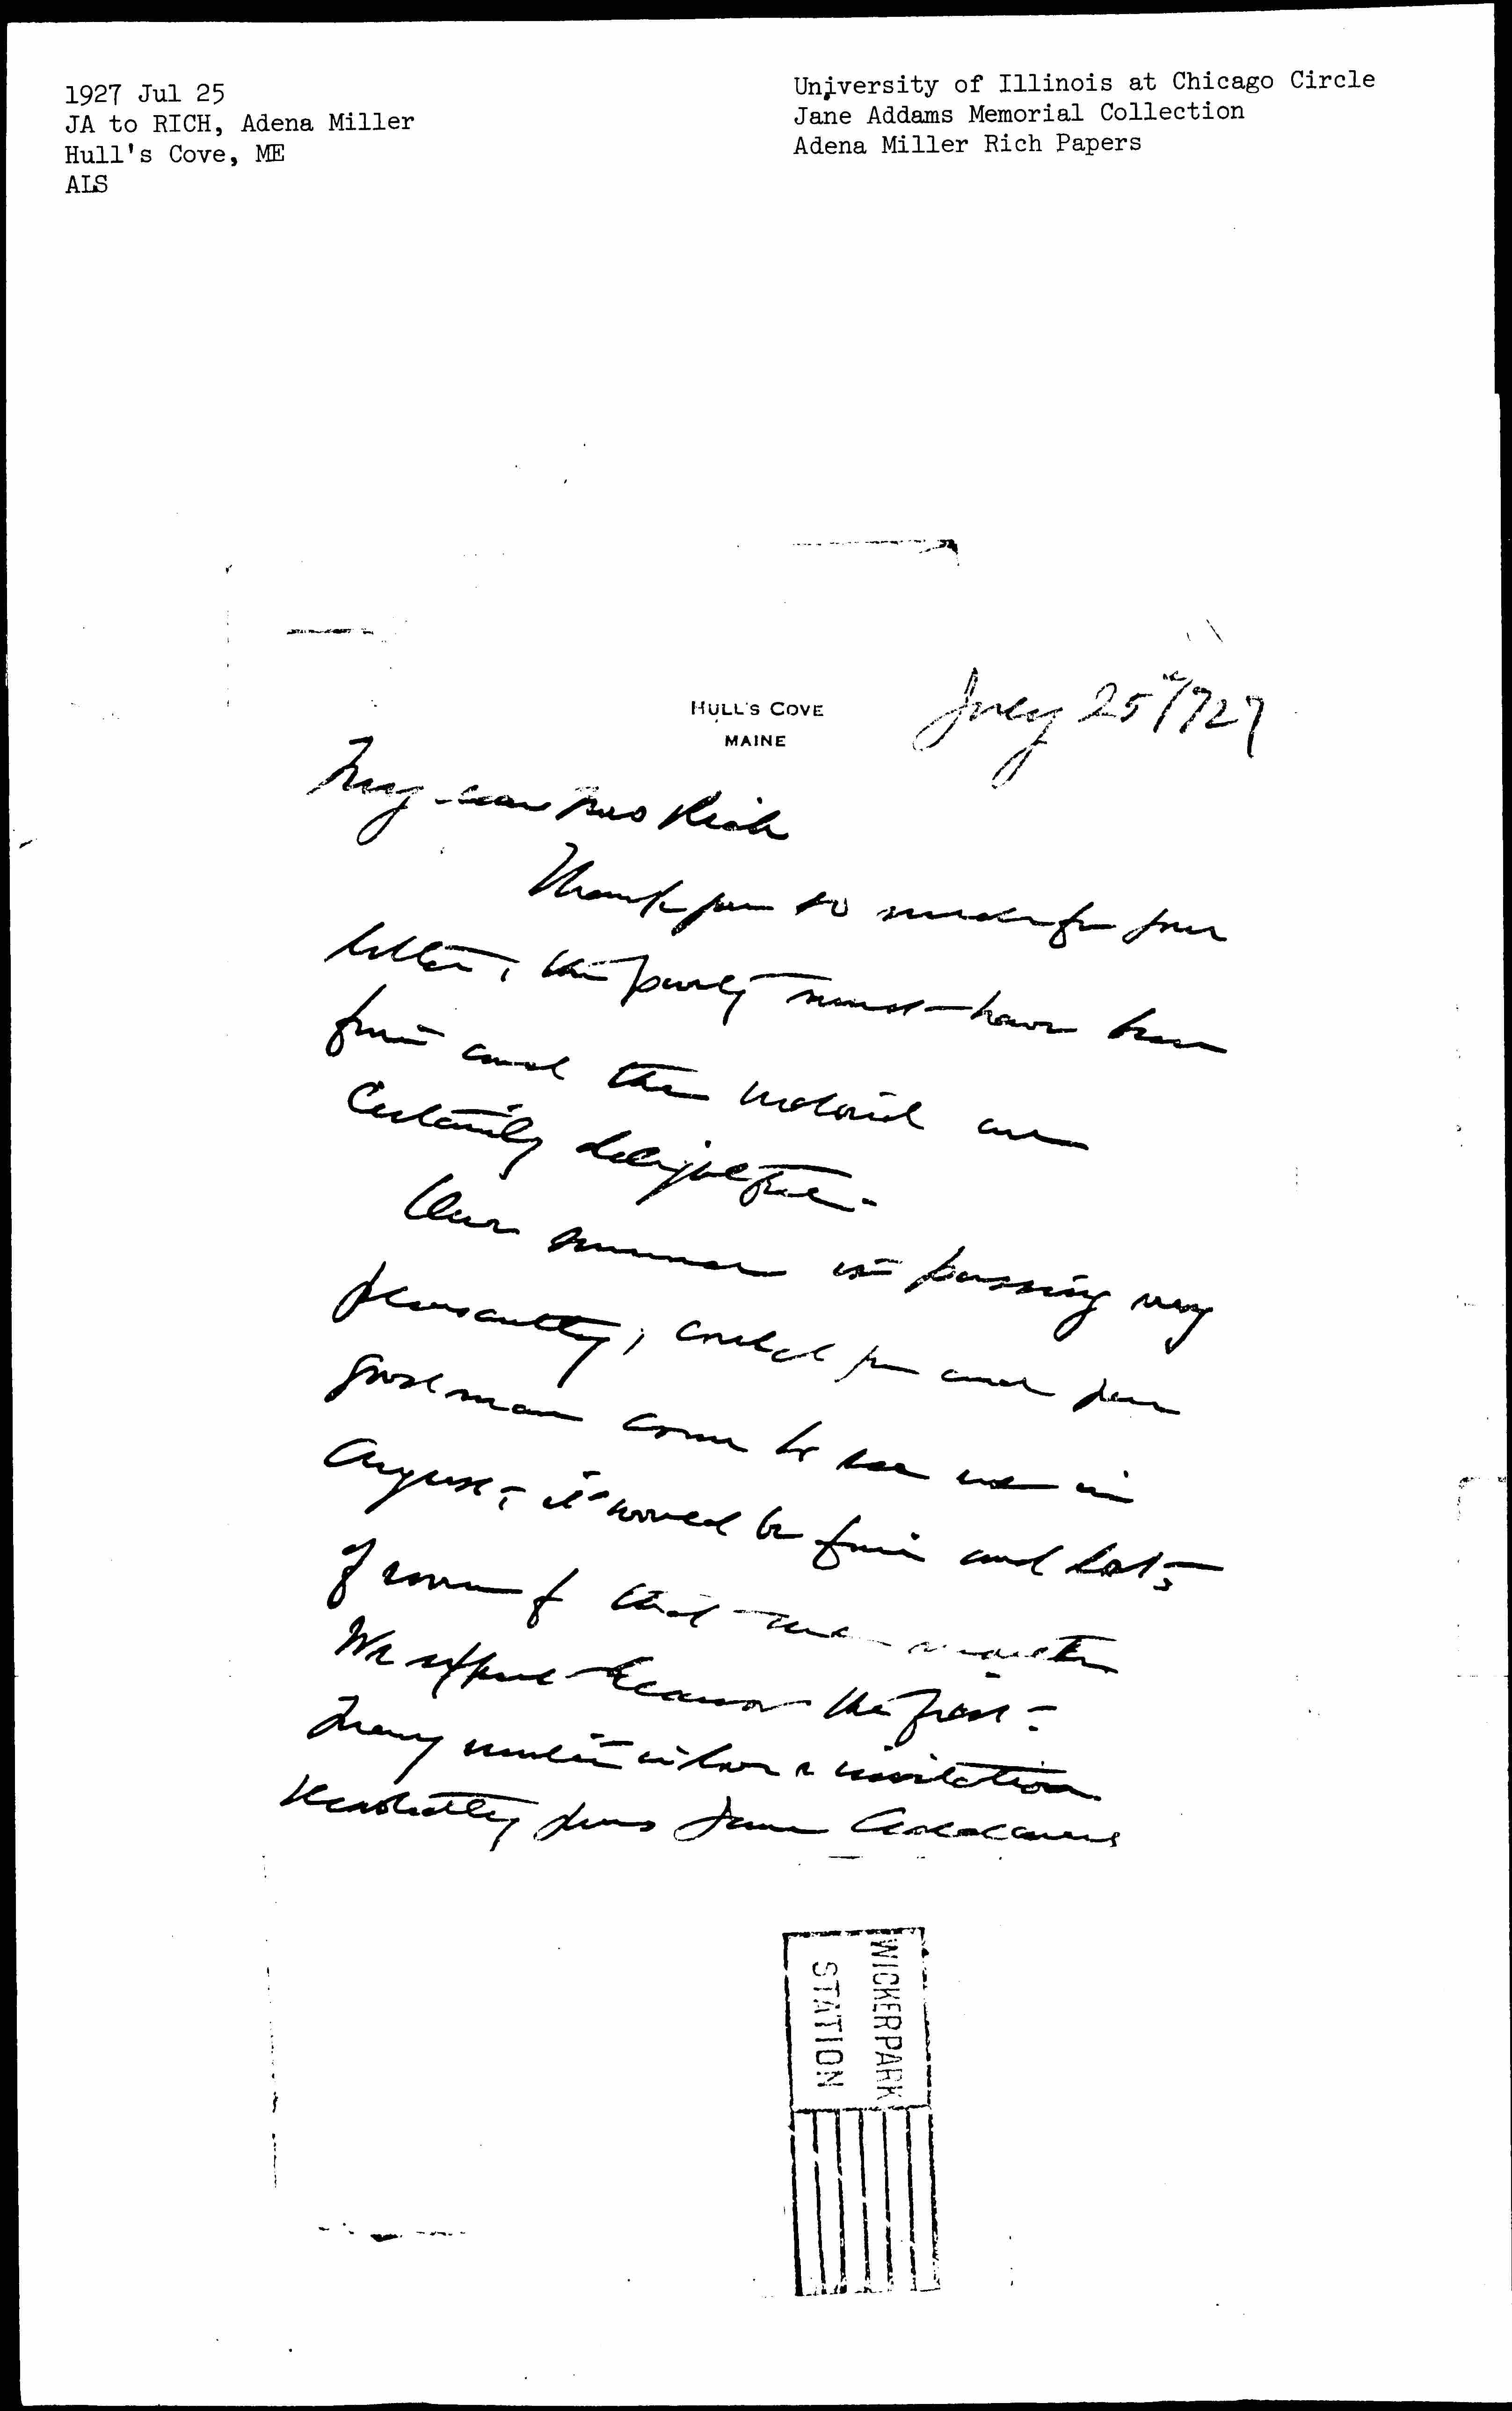 1927 Jul 25
JA to RICH, Adena Miller
Hull's Cove, ME
ALS
University of Illinois at Chicago Circle
Jane Addams Memorial Collection
Adena Miller Rich Papers
HULL'S COVE
MAINE
July 25" 1927
My dear Mrs Rich
Thank you so much for your
letter, the party must have been
fine and the are
certainly delightful.
Our summer is passing very
pleasantly, could you and your
good man come to see us in
August, it would be fine and lots
of room
We expect Eleanor the first.
Mary unites in love &amp; invitation
Yours Jane Addams
WICKER PARK
STATION